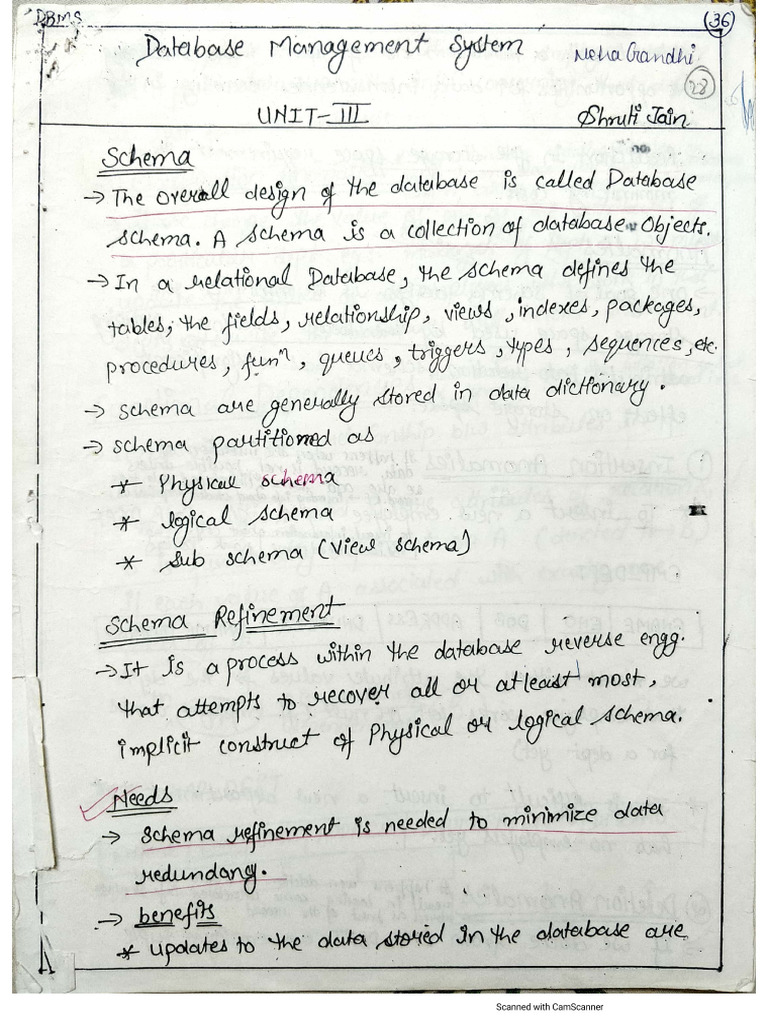 DBMS
36
Database Management System
Neha Gandhi
28
UNIT-III
Shruti Jain
Schema
→ The overall design of the database is called Database
schema. A schema is a collection of database Objects.
→ In a relational Database, the schema defines the
tables, the fields, relationship, views, indexes, packages,
procedures, funⁿ, queues, triggers, types, sequences, etc.
→ schema are generally stored in data dictionary.
→ schema partitioned as
* Physical schema
* logical schema
* Sub schema (view schema)
Schema Refinement
→ It is a process within the database reverse engg.
that attempts to recover all or atleast most,
implicit construct of Physical or logical schema.
Needs
→ Schema refinement is needed to minimize data
redundany.
→ benefits
* updates to the data stored in the database are
Scanned with CamScanner